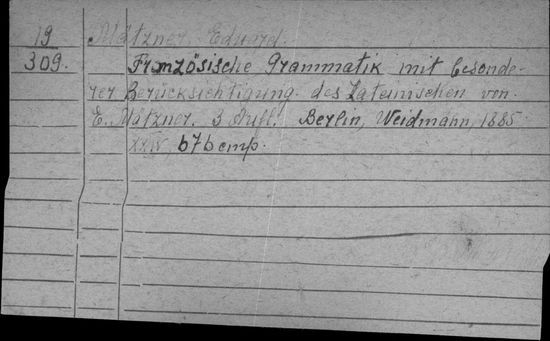 19 Mätzner, Eduard.
309. Französische Grammatik mit besonde-
rer Berücksichtigung des Lateinischen von
E. Mätzner. 3 Aufl. Berlin, Weidmann, 1885
XXIV, 676 стр.